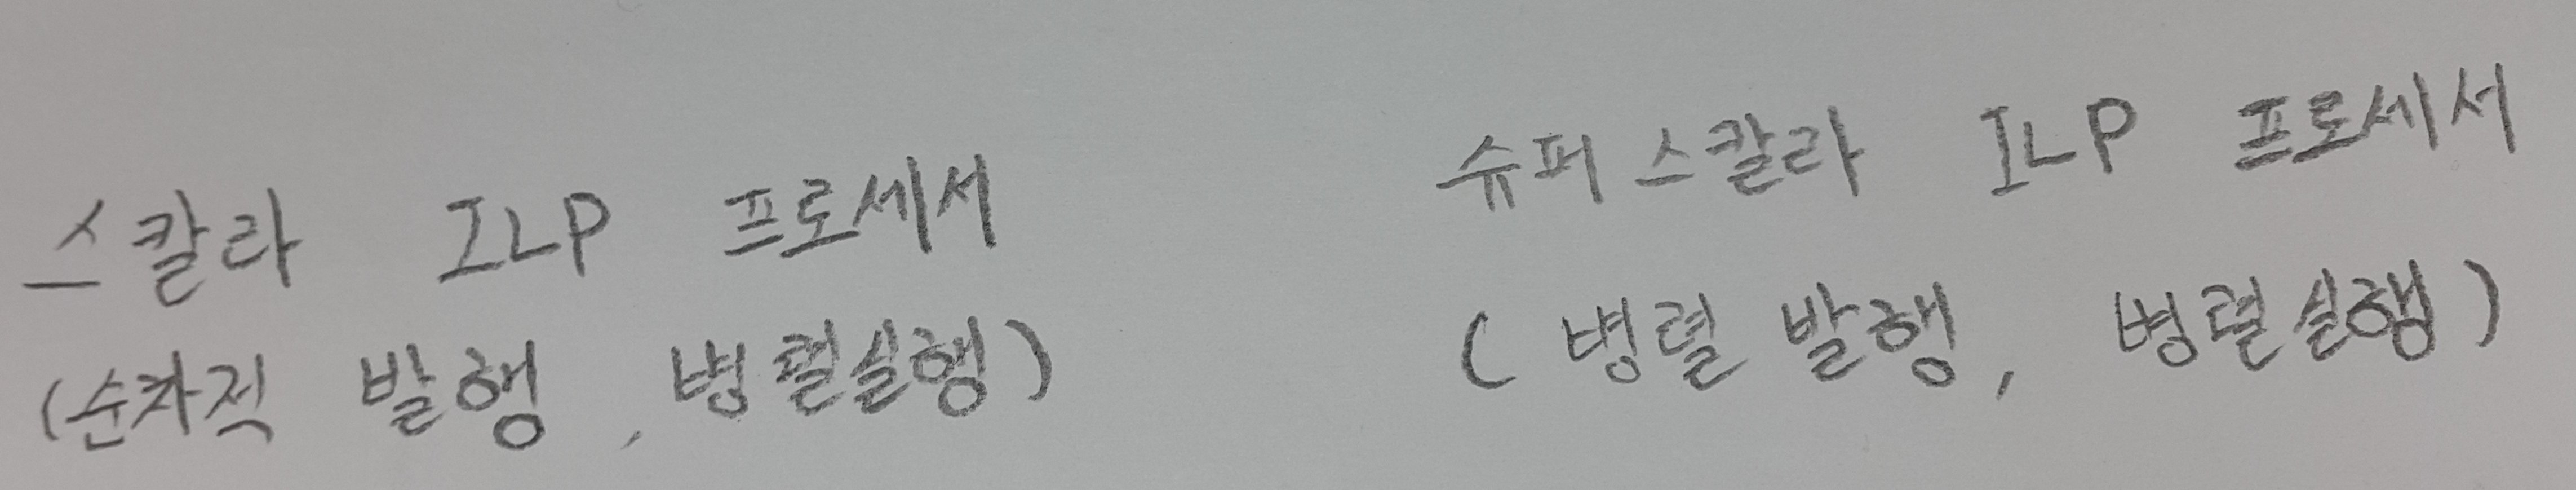 스칼라 ILP 프로세서
(순차적 발행, 병렬실행)
슈퍼스칼라 ILP 프로세서
(병렬 발행, 병렬실행)